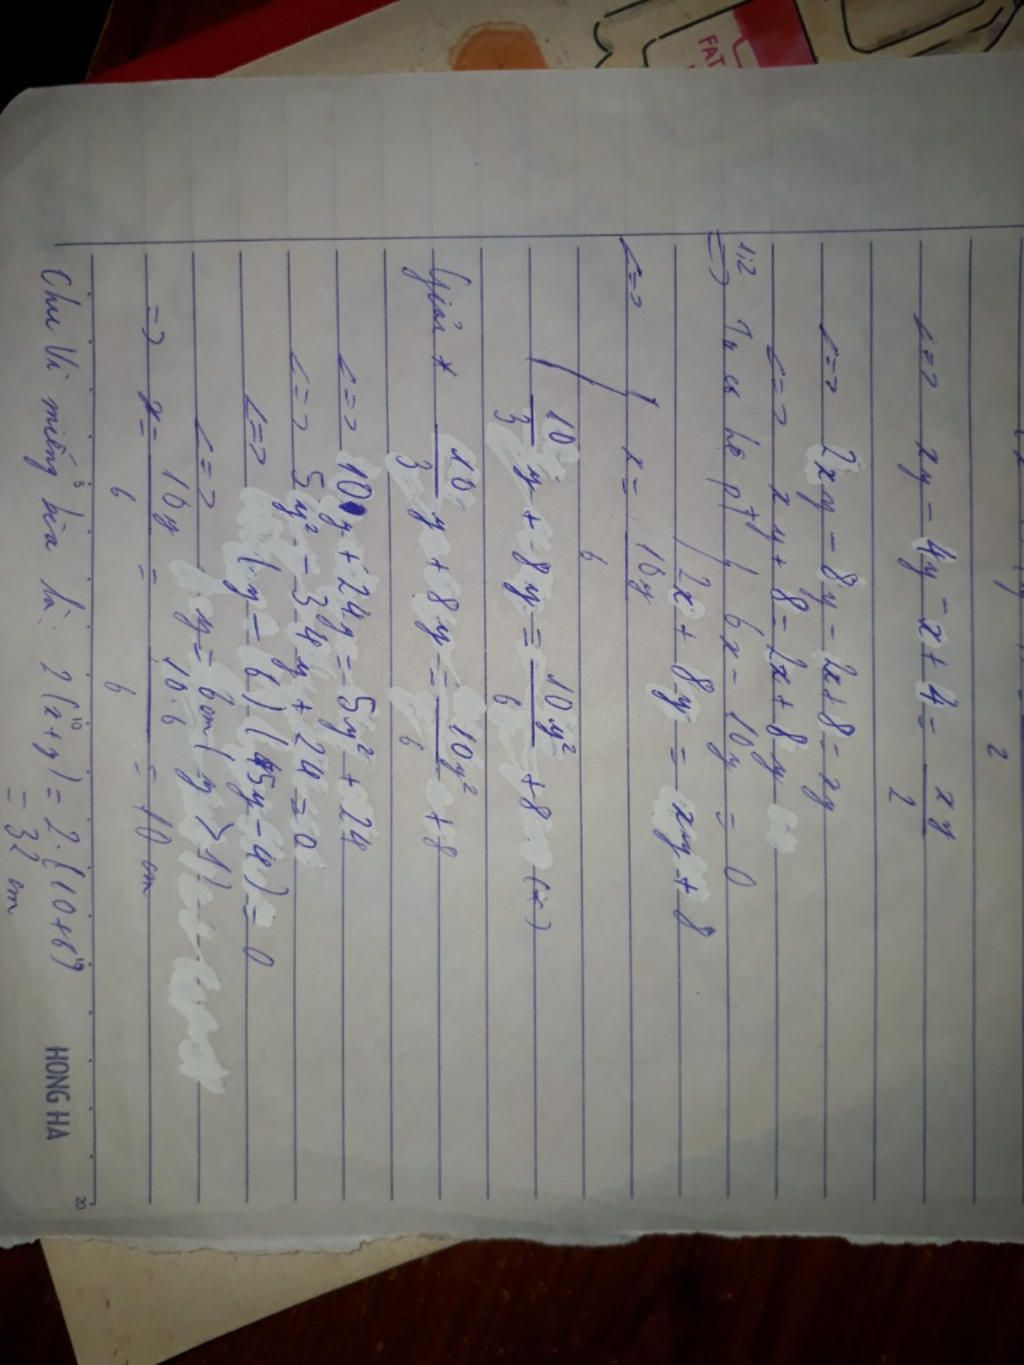 2
<=> xy - 4y - x + 4 = xy/2
<=> 2xy - 8y - 2x + 8 = xy
<=> xy + 8 = 2x + 8y
1,2 => Ta có hệ pt { 6x - 10y = 0
2x + 8y = xy + 8
<=> { x = 10y/6
10/3 y + 8y = 10y²/6 + 8 (*)
Giải * 10/3 y + 8y = 10y²/6 + 8
<=> 10y + 24y = 5y² + 24
<=> 5y² - 34y + 24 = 0
<=> (y - 6)(5y - 4) = 0
<=> y = 6 cm (y > 1)
=> x = 10y/6 = 10.6/6 = 10 cm
Chu Vi miếng bìa là: 2(x+y) = 2.(10+6)
= 32 cm
HONG HA
20
FAT